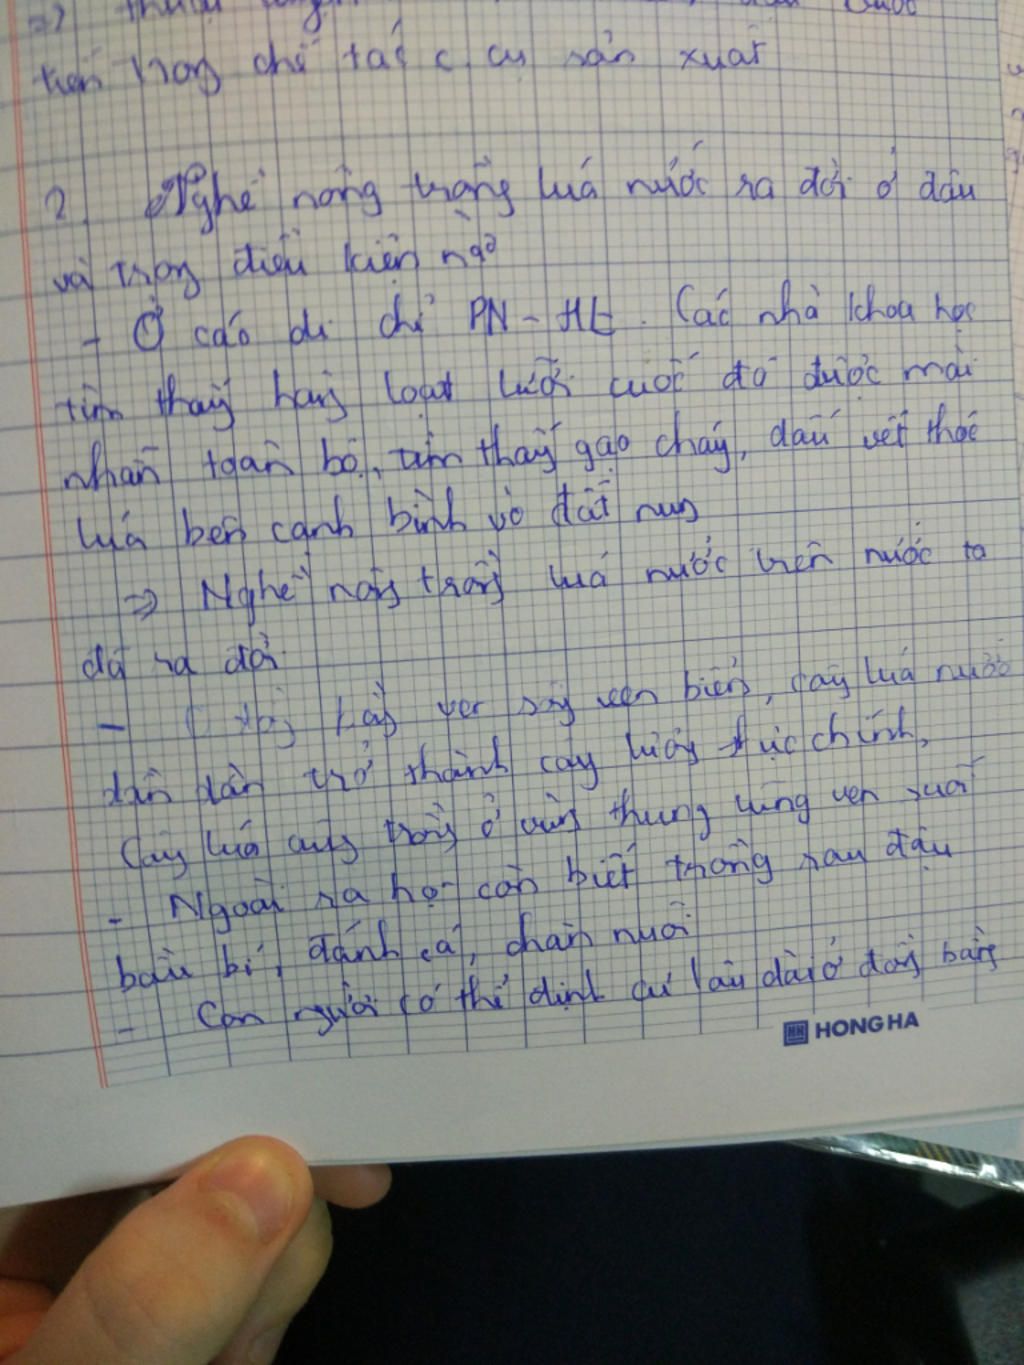 tiến trong chế tác c cụ sản xuất
2. Nghề nông trồng lúa nước ra đời ở đâu
và trong điều kiện nào
- Ở các di chỉ PN - HL. Các nhà khoa học
tìm thấy hàng loạt lưỡi cuốc đá được mài
nhẵn toàn bộ, tìm thấy gạo cháy, dấu vết thóc
lúa bên cạnh bình vò đất nung
=> Nghề nông trồng lúa nước trên nước ta
đã ra đời
- ven sông ven biển, cây lúa nước
dần dần trở thành cây lương thực chính,
Cây lúa cũng trồng ở vùng thung lũng ven suối
- Ngoài ra họ còn biết trồng rau đậu
bầu bí, đánh cá, chăn nuôi
- Con người có thể định cư lâu dài ở đồng bằng
HONG HA